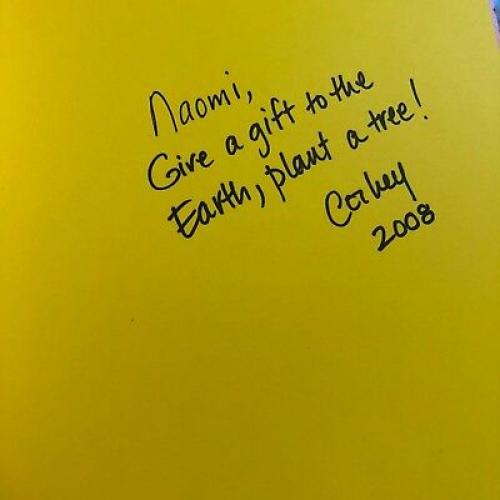 Naomi,
Give a gift to the
Earth, plant a tree!
Corkey
2008